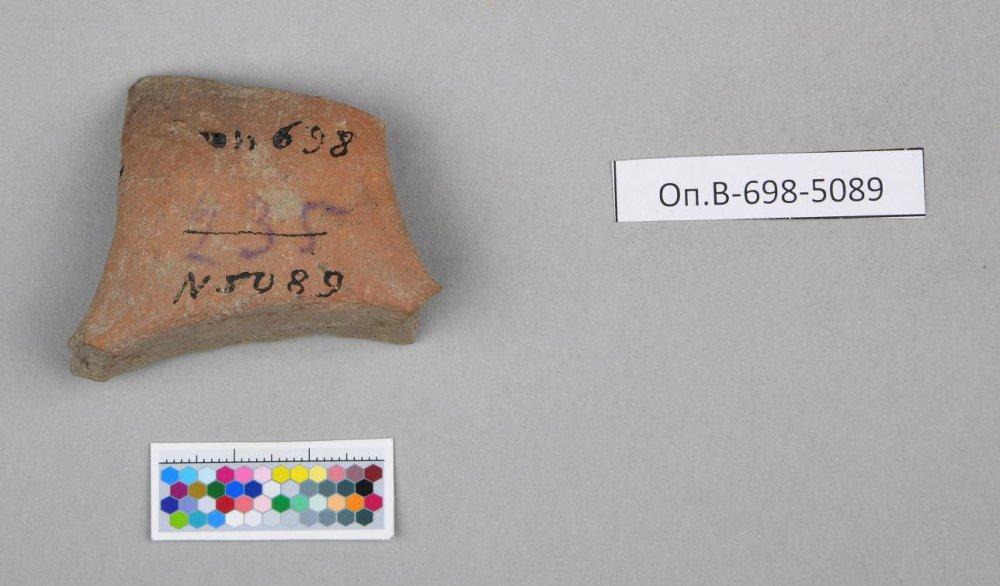 оп 698
235
N 5089
Оп.В-698-5089